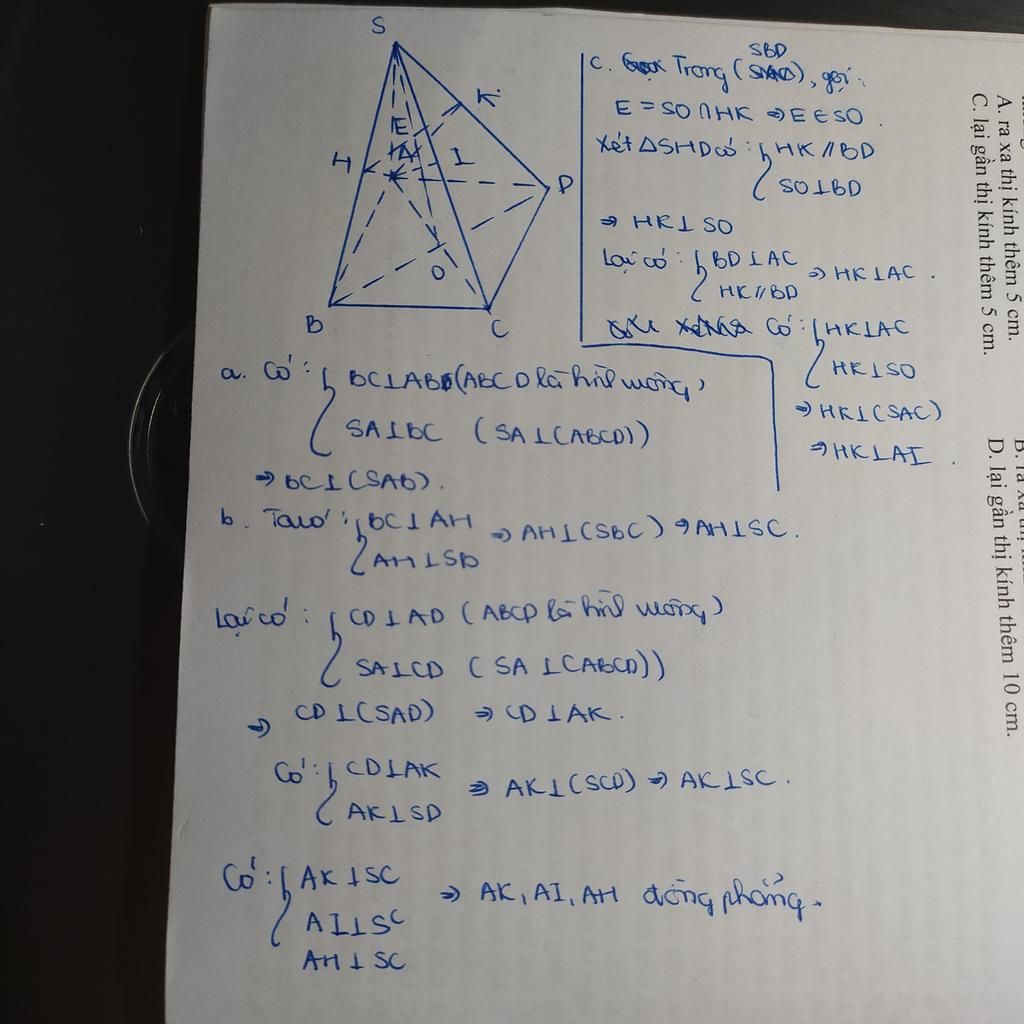 S
K
E
H
I
D
O
B
C
SBD
c. Trong ( ), gọi:
E = SO ∩ HK ⇒ E ∈ SO.
Xét ΔSHD có: { HK // BD
SO ⊥ BD
⇒ HK ⊥ SO
Lại có: { BD ⊥ AC ⇒ HK ⊥ AC.
HK // BD
Có: { HK ⊥ AC
HK ⊥ SO
⇒ HK ⊥ (SAC)
⇒ HK ⊥ AI.
a. Có: { BC ⊥ AB (ABCD là hình vuông)
SA ⊥ BC (SA ⊥ (ABCD))
⇒ BC ⊥ (SAB).
b. Ta có: { BC ⊥ AH ⇒ AH ⊥ (SBC) ⇒ AH ⊥ SC.
AH ⊥ SB
Lại có: { CD ⊥ AD (ABCD là hình vuông)
SA ⊥ CD (SA ⊥ (ABCD))
⇒ CD ⊥ (SAD) ⇒ CD ⊥ AK.
Có: { CD ⊥ AK ⇒ AK ⊥ (SCD) ⇒ AK ⊥ SC.
AK ⊥ SD
Có: { AK ⊥ SC ⇒ AK, AI, AH đồng phẳng.
AI ⊥ SC
AH ⊥ SC
A. ra xa thị kính thêm 5 cm.
C. lại gần thị kính thêm 5 cm.
D. lại gần thị kính thêm 10 cm.